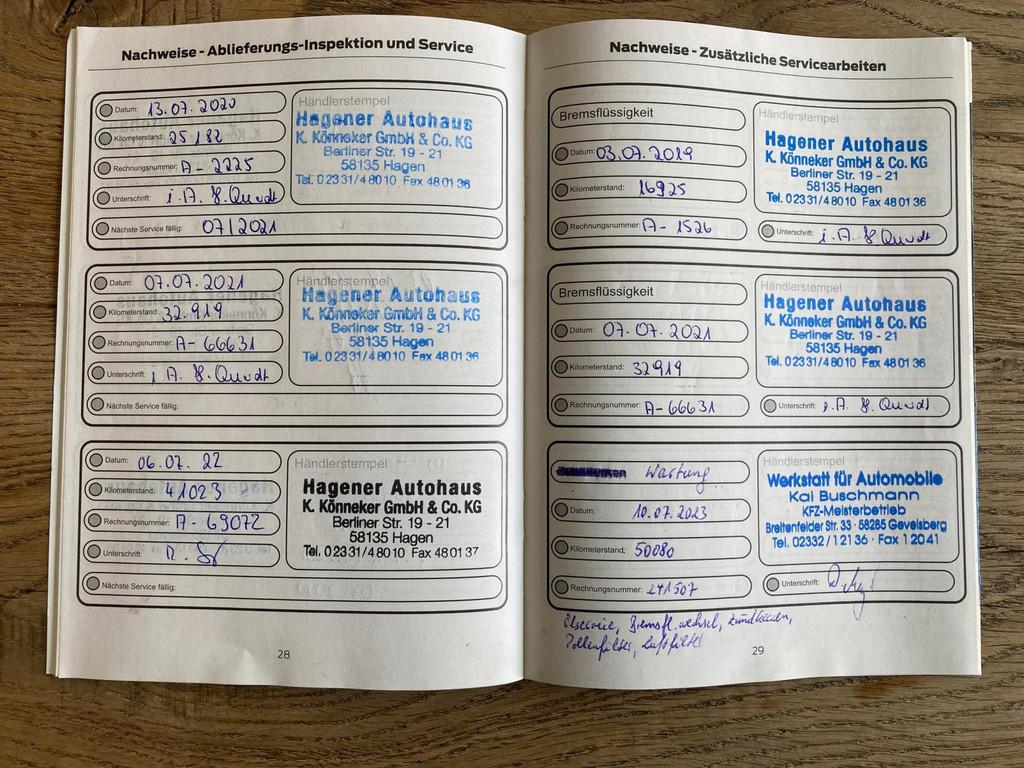 Nachweise - Ablieferungs-Inspektion und Service
Datum: 13.07.2020
Kilometerstand: 25182
Rechnungsnummer: A-2225
Unterschrift: i.A. J. Qundt
Nächste Service fällig: 07/2021
Händlerstempel
Hagener Autohaus
K. Könneker GmbH & Co. KG
Berliner Str. 19 - 21
58135 Hagen
Tel. 0 23 31/4 80 10 Fax 48 01 36
Datum: 07.07.2021
Kilometerstand: 32.919
Rechnungsnummer: A-66631
Unterschrift: i.A. J. Qundt
Nächste Service fällig:
Händlerstempel
Hagener Autohaus
K. Könneker GmbH & Co. KG
Berliner Str. 19 - 21
58135 Hagen
Tel. 0 23 31/4 80 10 Fax 48 01 36
Datum: 06.07.22
Kilometerstand: 41023
Rechnungsnummer: A-69072
Unterschrift:
Nächste Service fällig:
Händlerstempel
Hagener Autohaus
K. Könneker GmbH & Co. KG
Berliner Str. 19 - 21
58135 Hagen
Tel. 0 23 31/4 80 10 Fax 48 01 37
28
Nachweise - Zusätzliche Servicearbeiten
Bremsflüssigkeit
Datum: 03.07.2019
Kilometerstand: 16925
Rechnungsnummer: A-1526
Händlerstempel
Hagener Autohaus
K. Könneker GmbH & Co. KG
Berliner Str. 19 - 21
58135 Hagen
Tel. 0 23 31/4 80 10 Fax 48 01 36
Unterschrift: i.A. J. Qundt
Bremsflüssigkeit
Datum: 07.07.2021
Kilometerstand: 32919
Rechnungsnummer: A-66631
Händlerstempel
Hagener Autohaus
K. Könneker GmbH & Co. KG
Berliner Str. 19 - 21
58135 Hagen
Tel. 0 23 31/4 80 10 Fax 48 01 36
Unterschrift: i.A. J. Qundt
Wartung
Datum: 10.07.2023
Kilometerstand: 50080
Rechnungsnummer: 241507
Händlerstempel
Werkstatt für Automobile
Kai Buschmann
KFZ-Meisterbetrieb
Breitenfelder Str. 33 · 58285 Gevelsberg
Tel. 02332 / 1 21 36 · Fax 1 20 41
Unterschrift:
Ölservice, Bremsfl. wechsel, Zündkerzen,
Pollenfilter, Luftfilter
29